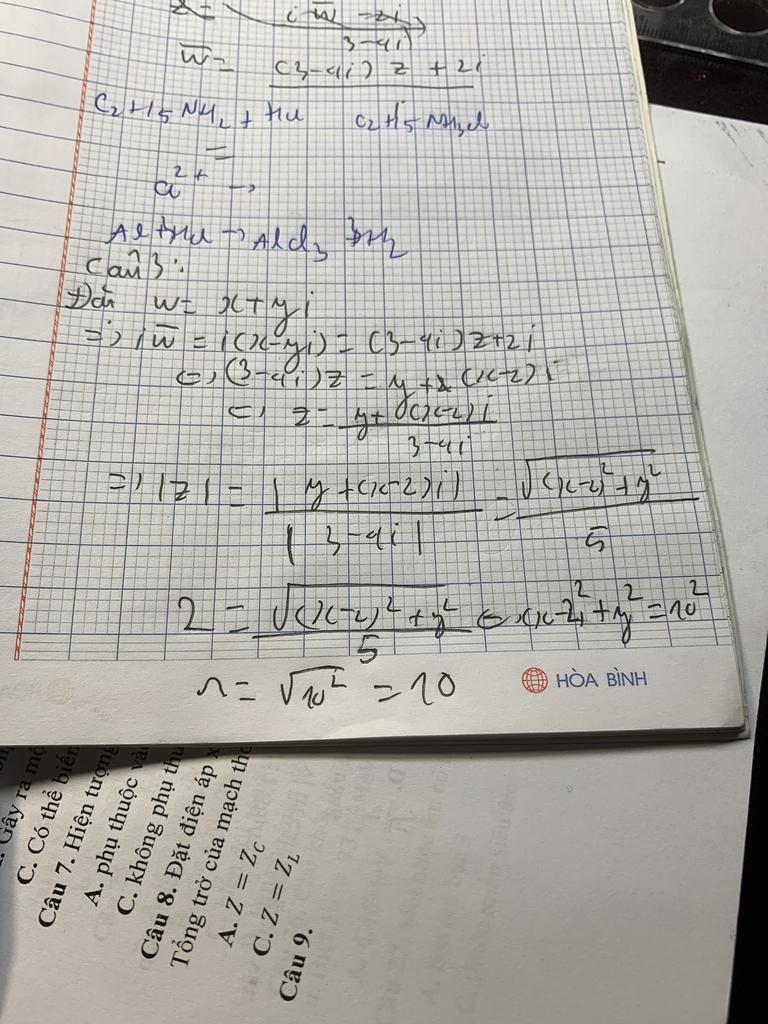 i w̅ - 2i
3-4i
w̅ = (3-4i) z + 2i
C2H5NH2 + HCl C2H5NH3Cl
=
a²⁺ →
Al + 3HCl → AlCl3 3H2
Câu 3:
Đặt w = x + yi
=> i w̅ = i(x-yi) = (3-4i) z + 2i
<=> (3-4i) z = y + (x-2) i
<=> z = y + (x-2) i
3-4i
=> |z| = | y + (x-2) i| = √(x-2)² + y²
| 3-4i | 5
2 = √(x-2)² + y² <=> (x-2)² + y² = 10²
5
r = √10² = 10
HÒA BÌNH
Gây ra mộ
C. Có thể biến
Câu 7. Hiện tượng
A. phụ thuộc và
C. không phụ thu
Câu 8. Đặt điện áp x
Tổng trở của mạch the
A. Z = ZC
C. Z = ZL
Câu 9.